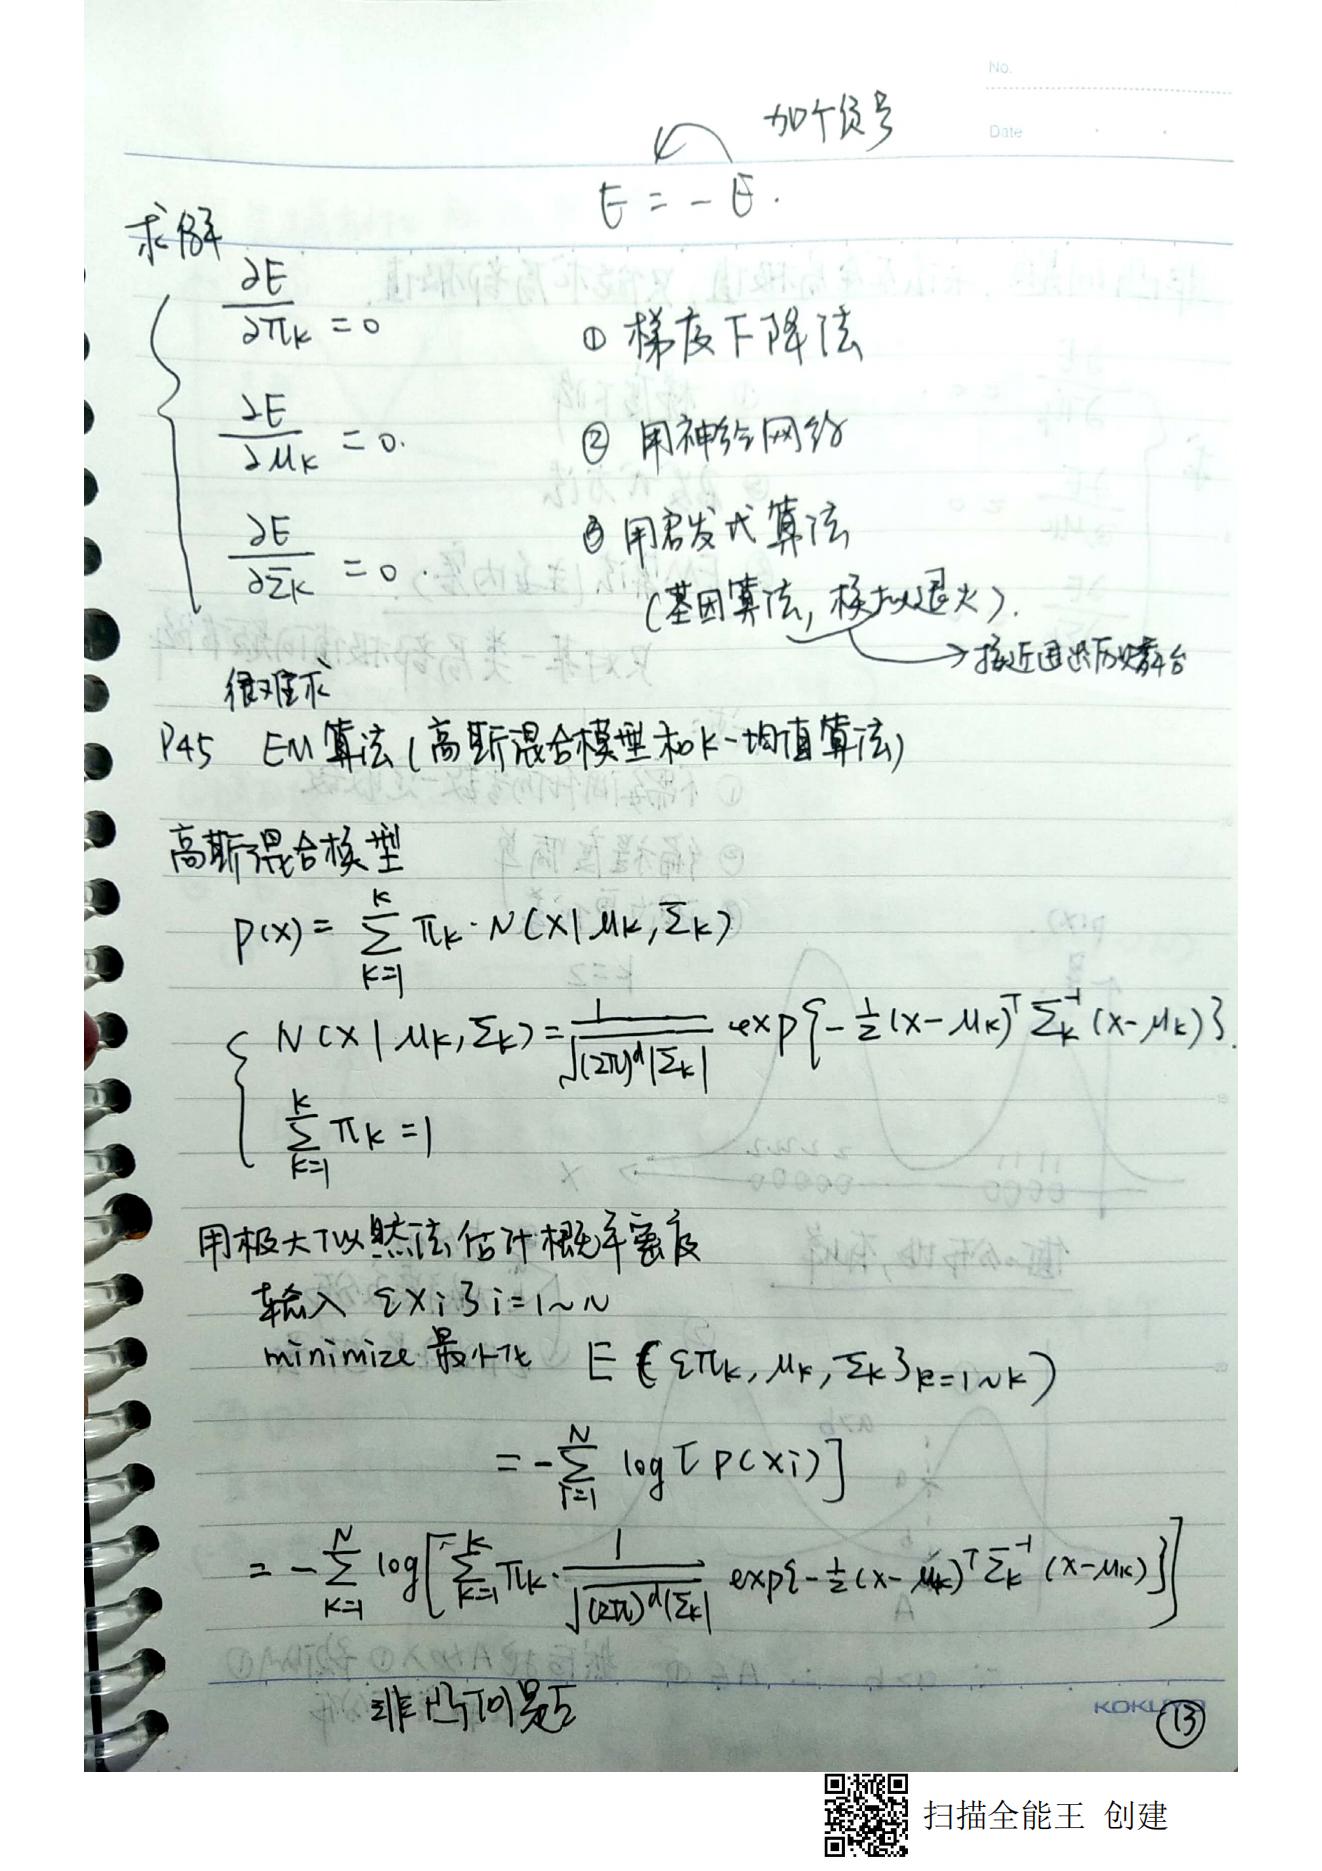 No.
Date
加个负号
E = - E.
求解
∂E/∂πk = 0
① 梯度下降法
∂E/∂μk = 0.
② 用神经网络
∂E/∂Σk = 0.
③ 用启发式算法
(基因算法, 模拟退火).
→ 接近退出历史舞台
很难求
P45 EM算法(高斯混合模型和K-均值算法)
高斯混合模型
P(x) = Σ_{k=1}^{K} πk · N(x|μk, Σk)
{ N(x|μk, Σk) = 1/√((2π)^d|Σk|) exp{-½(x-μk)^T Σk^{-1} (x-μk)}.
Σ_{k=1}^{K} πk = 1
用极大似然法估计概率密度
输入 {xi} i=1~N
minimize 最小化 E ({πk, μk, Σk} k=1~K)
= -Σ_{i=1}^{N} log[P(xi)]
= -Σ_{k=1}^{N} log[Σ_{k=1}^{K} πk · 1/√((2π)^d|Σk|) exp{-½(x-μk)^T Σk^{-1} (x-μk)}]
非凸问题
KOKUYO
13
扫描全能王 创建